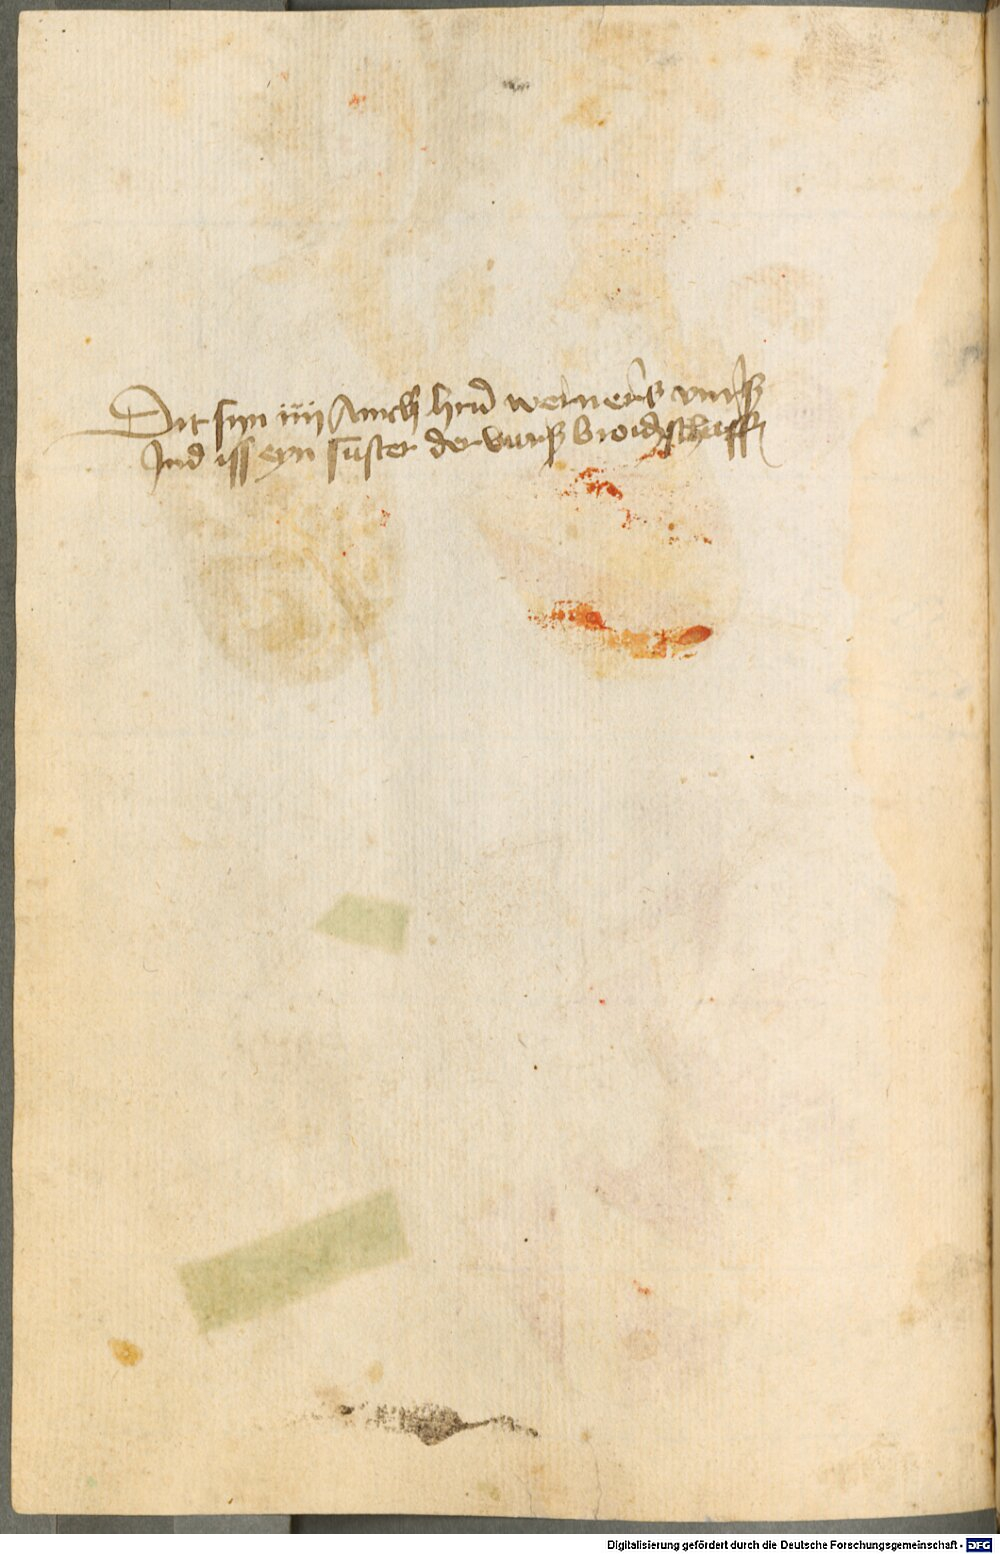 Dit syn iiij Amch hrn werners vurß
Ind iss eyn suster der vurß broidschaff
Digitalisierung gefördert durch die Deutsche Forschungsgemeinschaft - DFG